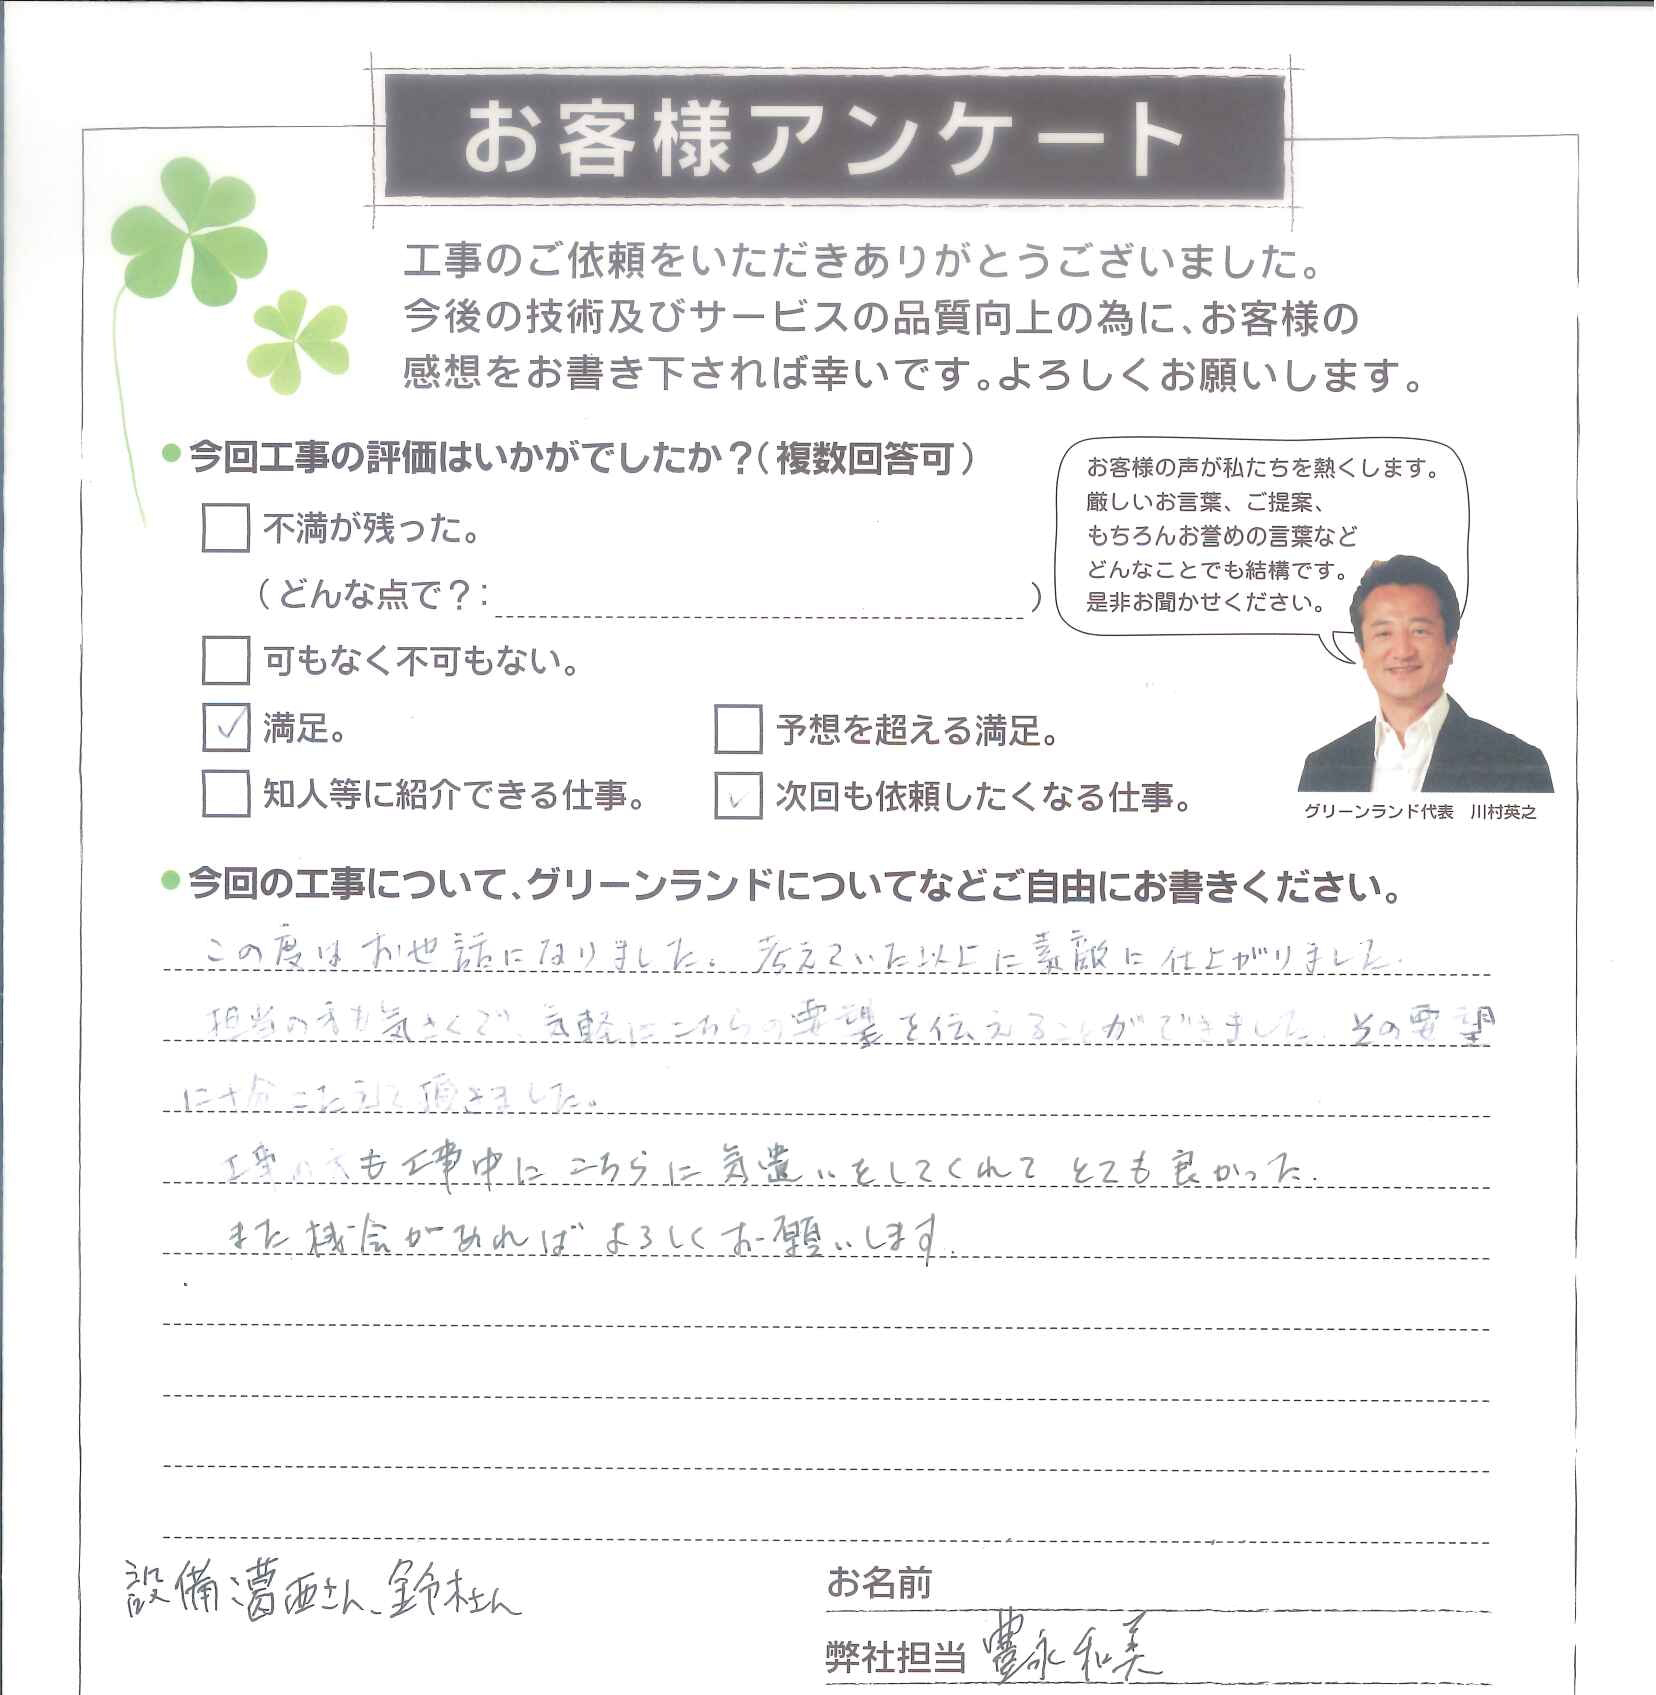 お客様アンケート
工事のご依頼をいただきありがとうございました。
今後の技術及びサービスの品質向上の為に、お客様の
感想をお書き下されば幸いです。よろしくお願いします。
今回工事の評価はいかがでしたか？（複数回答可）
不満が残った。
（どんな点で？：　）
可もなく不可もない。
✓ 満足。
予想を超える満足。
知人等に紹介できる仕事。
✓ 次回も依頼したくなる仕事。
お客様の声が私たちを熱くします。
厳しいお言葉、ご提案、
もちろんお誉めの言葉など
どんなことでも結構です。
是非お聞かせください。
グリーンランド代表　川村英之
今回の工事について、グリーンランドについてなどご自由にお書きください。
この度はお世話になりました。考えていた以上に素敵に仕上がりました。
担当の方も気さくで、気軽にこちらの要望を伝えることができました。その要望
に十分こたえて頂きました。
工事の方も工事中にこちらに気遣いをしてくれてとても良かった。
また機会があればよろしくお願いします。
設備 葛西さん、鈴木さん
お名前
弊社担当 豊永和美